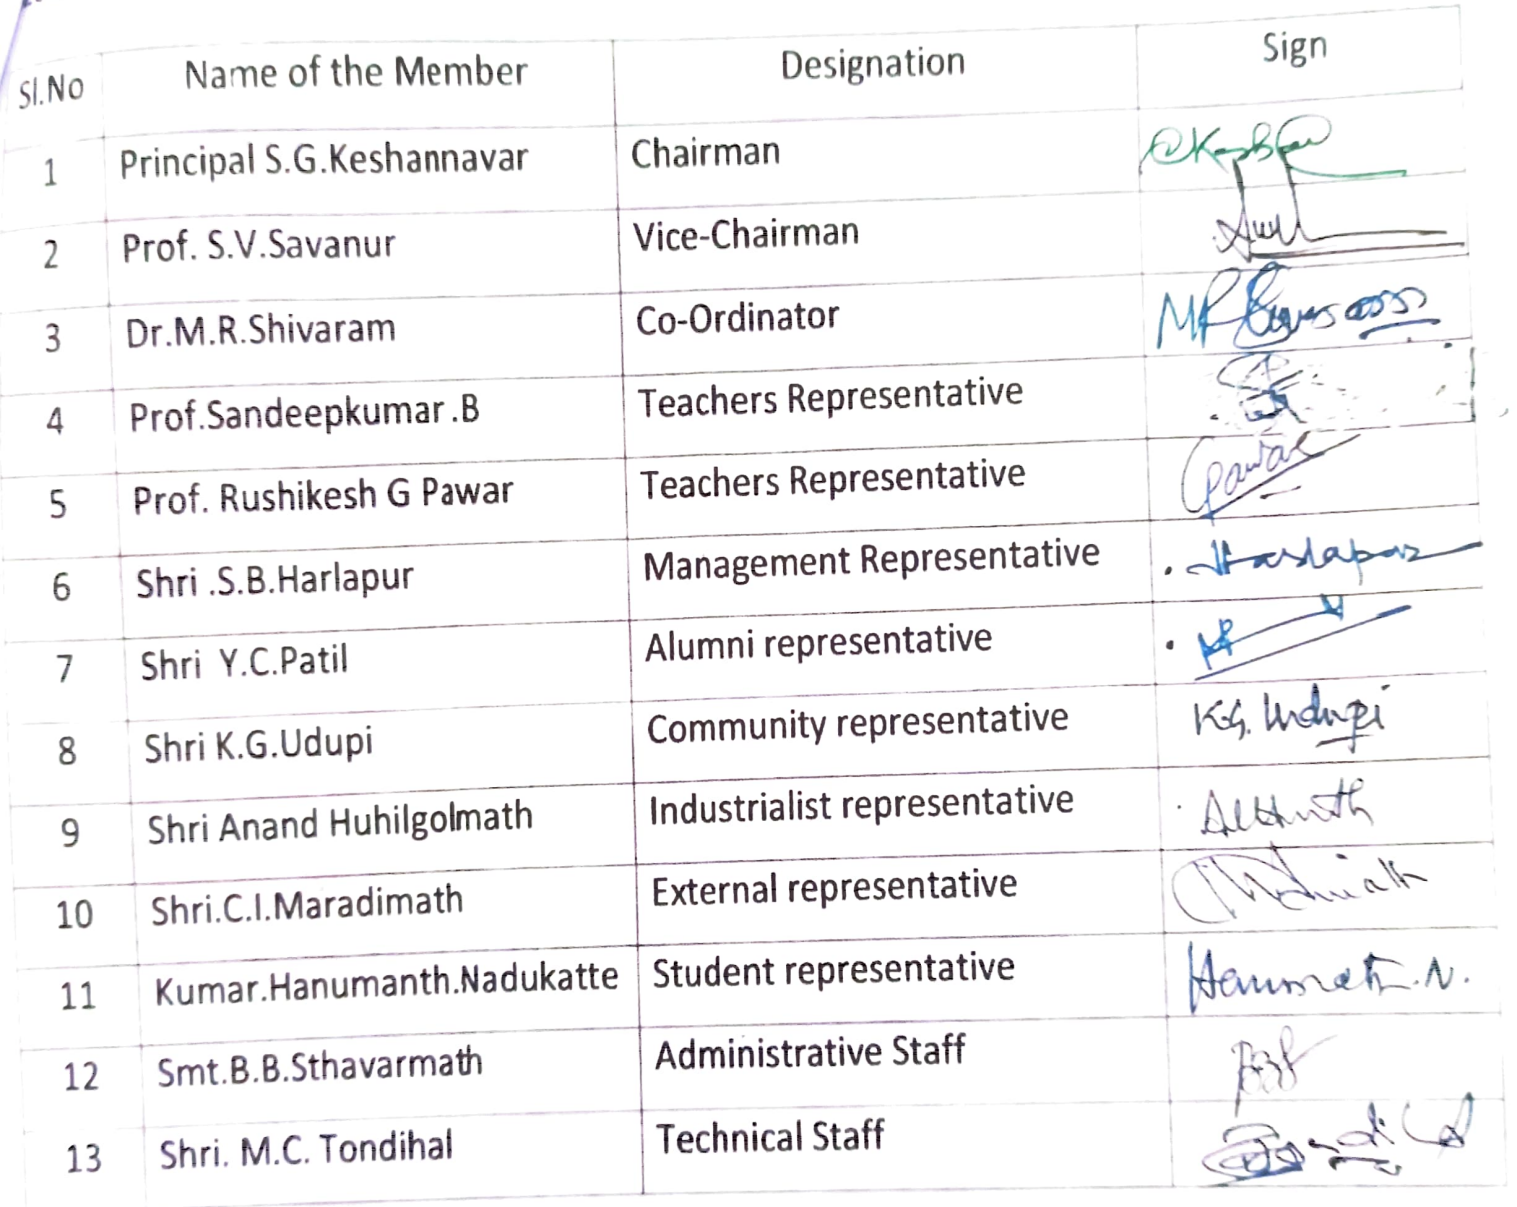 Sl.No Name of the Member Designation Sign
1 Principal S.G.Keshannavar Chairman
2 Prof. S.V.Savanur Vice-Chairman
3 Dr.M.R.Shivaram Co-Ordinator
4 Prof.Sandeepkumar.B Teachers Representative
5 Prof. Rushikesh G Pawar Teachers Representative Pawar
6 Shri .S.B.Harlapur Management Representative Harlapur
7 Shri Y.C.Patil Alumni representative
8 Shri K.G.Udupi Community representative K.G. Udupi
9 Shri Anand Huhilgolmath Industrialist representative
10 Shri.C.I.Maradimath External representative
11 Kumar.Hanumanth.Nadukatte Student representative
12 Smt.B.B.Sthavarmath Administrative Staff
13 Shri. M.C. Tondihal Technical Staff